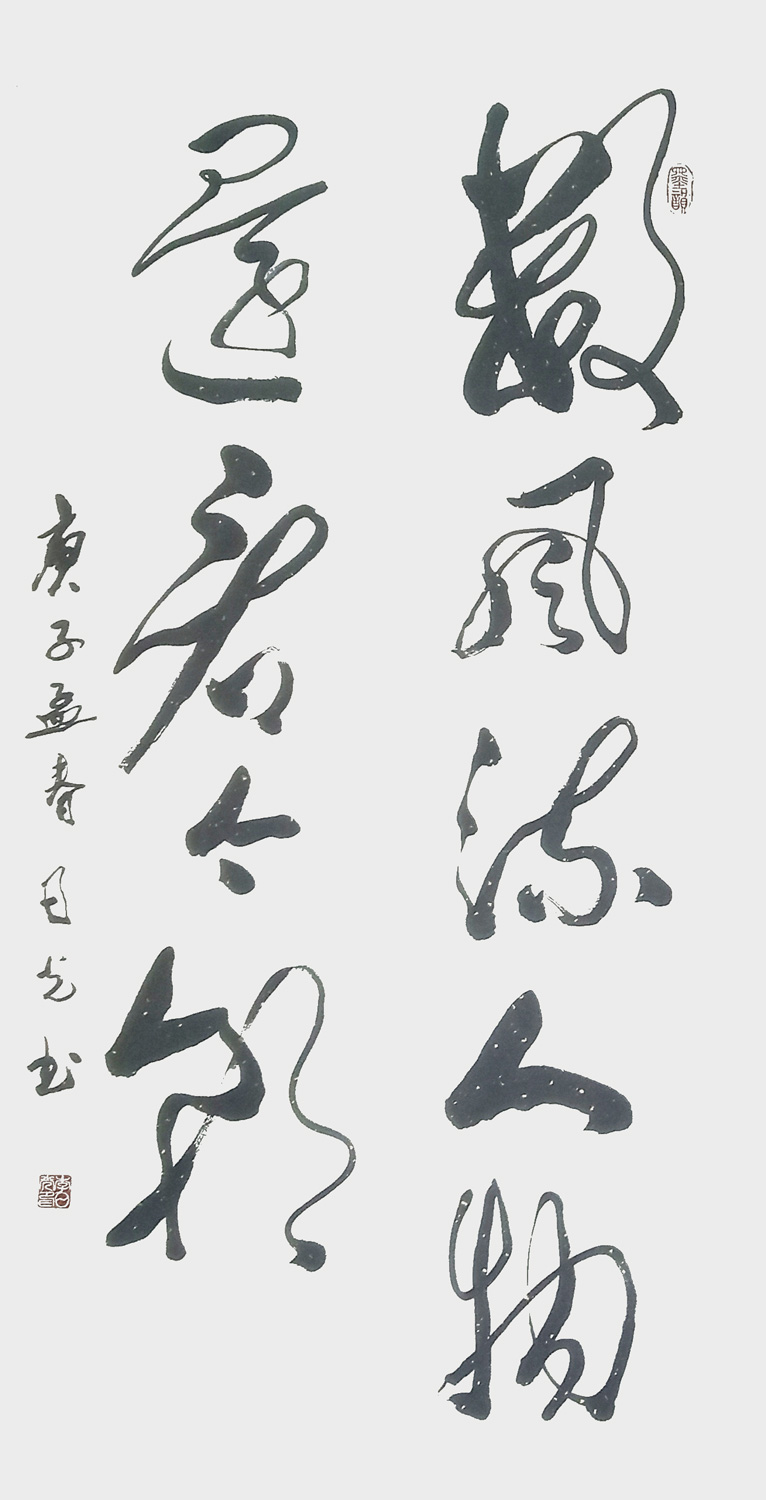 數風流人物
還看今朝
庚子孟春日光书